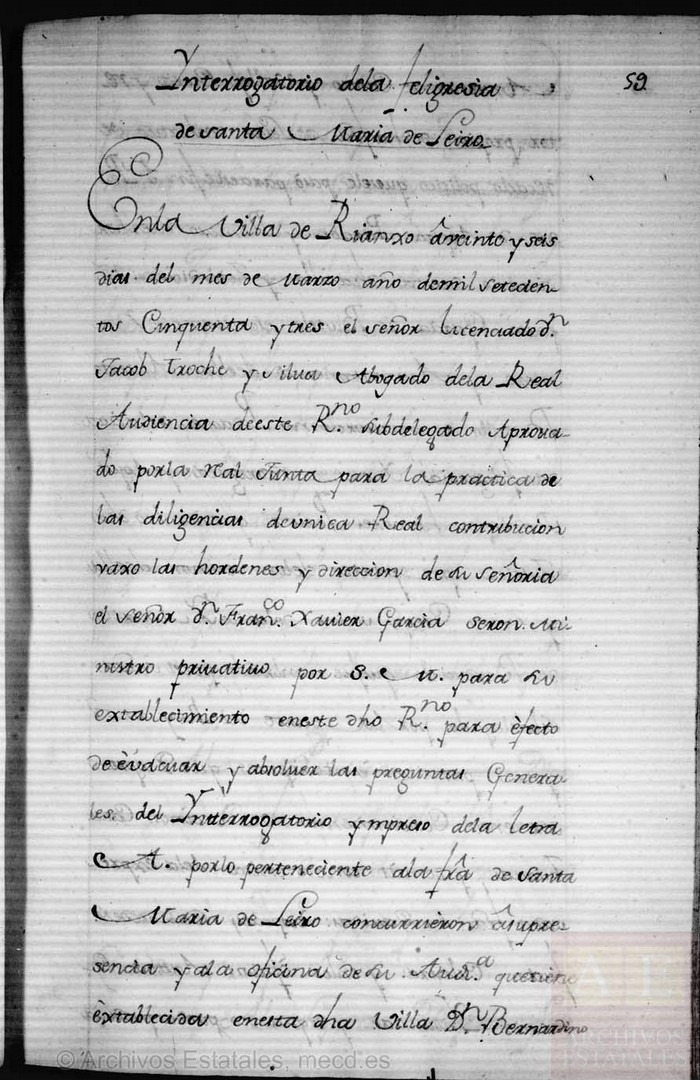 Ynterrogatorio dela feligresia
59
de santa Maria de Leiro
Enla Villa de Rianxo â veinte y seis
dias del mes de Marzo año demil setecien-
tos Cinquenta ytres el señor licenciado dn.
Jacob Troche y silua Abogado dela Real
Audiencia deeste Rno. subdelegado Aproua-
do porla real Junta para la practica de
las diligencias deunica Real contribucion
vaxo las hordenes y direccion de su señoria
el señor dn. Franco. Xavier Garcia seron Mi-
nistro priuatiuo por S. M. para su
extablecimiento eneste dho Rno. para êfecto
de êvacuar y absoluer las preguntas Genera
les del Ynterrogatorio ympreso dela letra
A. porlo perteneciente ala fra de santa
Maria de Leiro concurrieron âsupre-
sencia yala oficina de su Auda. quetiene
êxtablecida enesta dha Villa Dn. Bernardino
© Archivos Estatales, mecd.es
AE
ARCHIVOS
ESTATALES